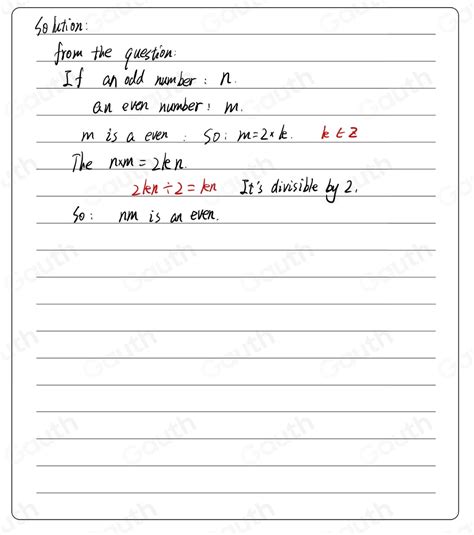 Solution:
from the question:
If an odd number: n.
an even number: m.
m is a even: So: m=2×k. k∈Z
The n×m = 2kn.
2kn÷2=kn It's divisible by 2.
So: nm is an even.